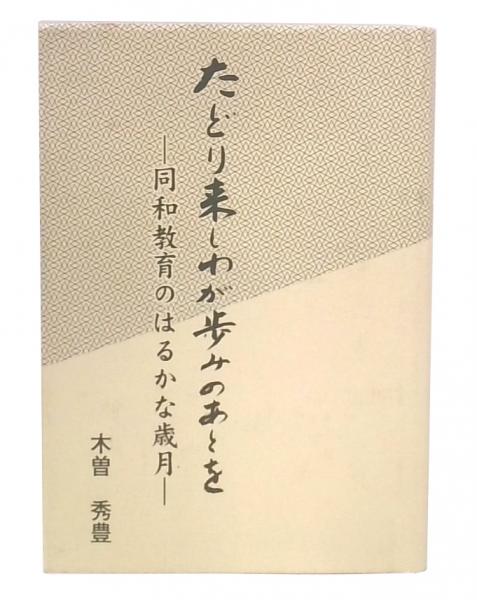 たどり来しわが歩みのあとを
―同和教育のはるかな歳月―
木曽 秀豊